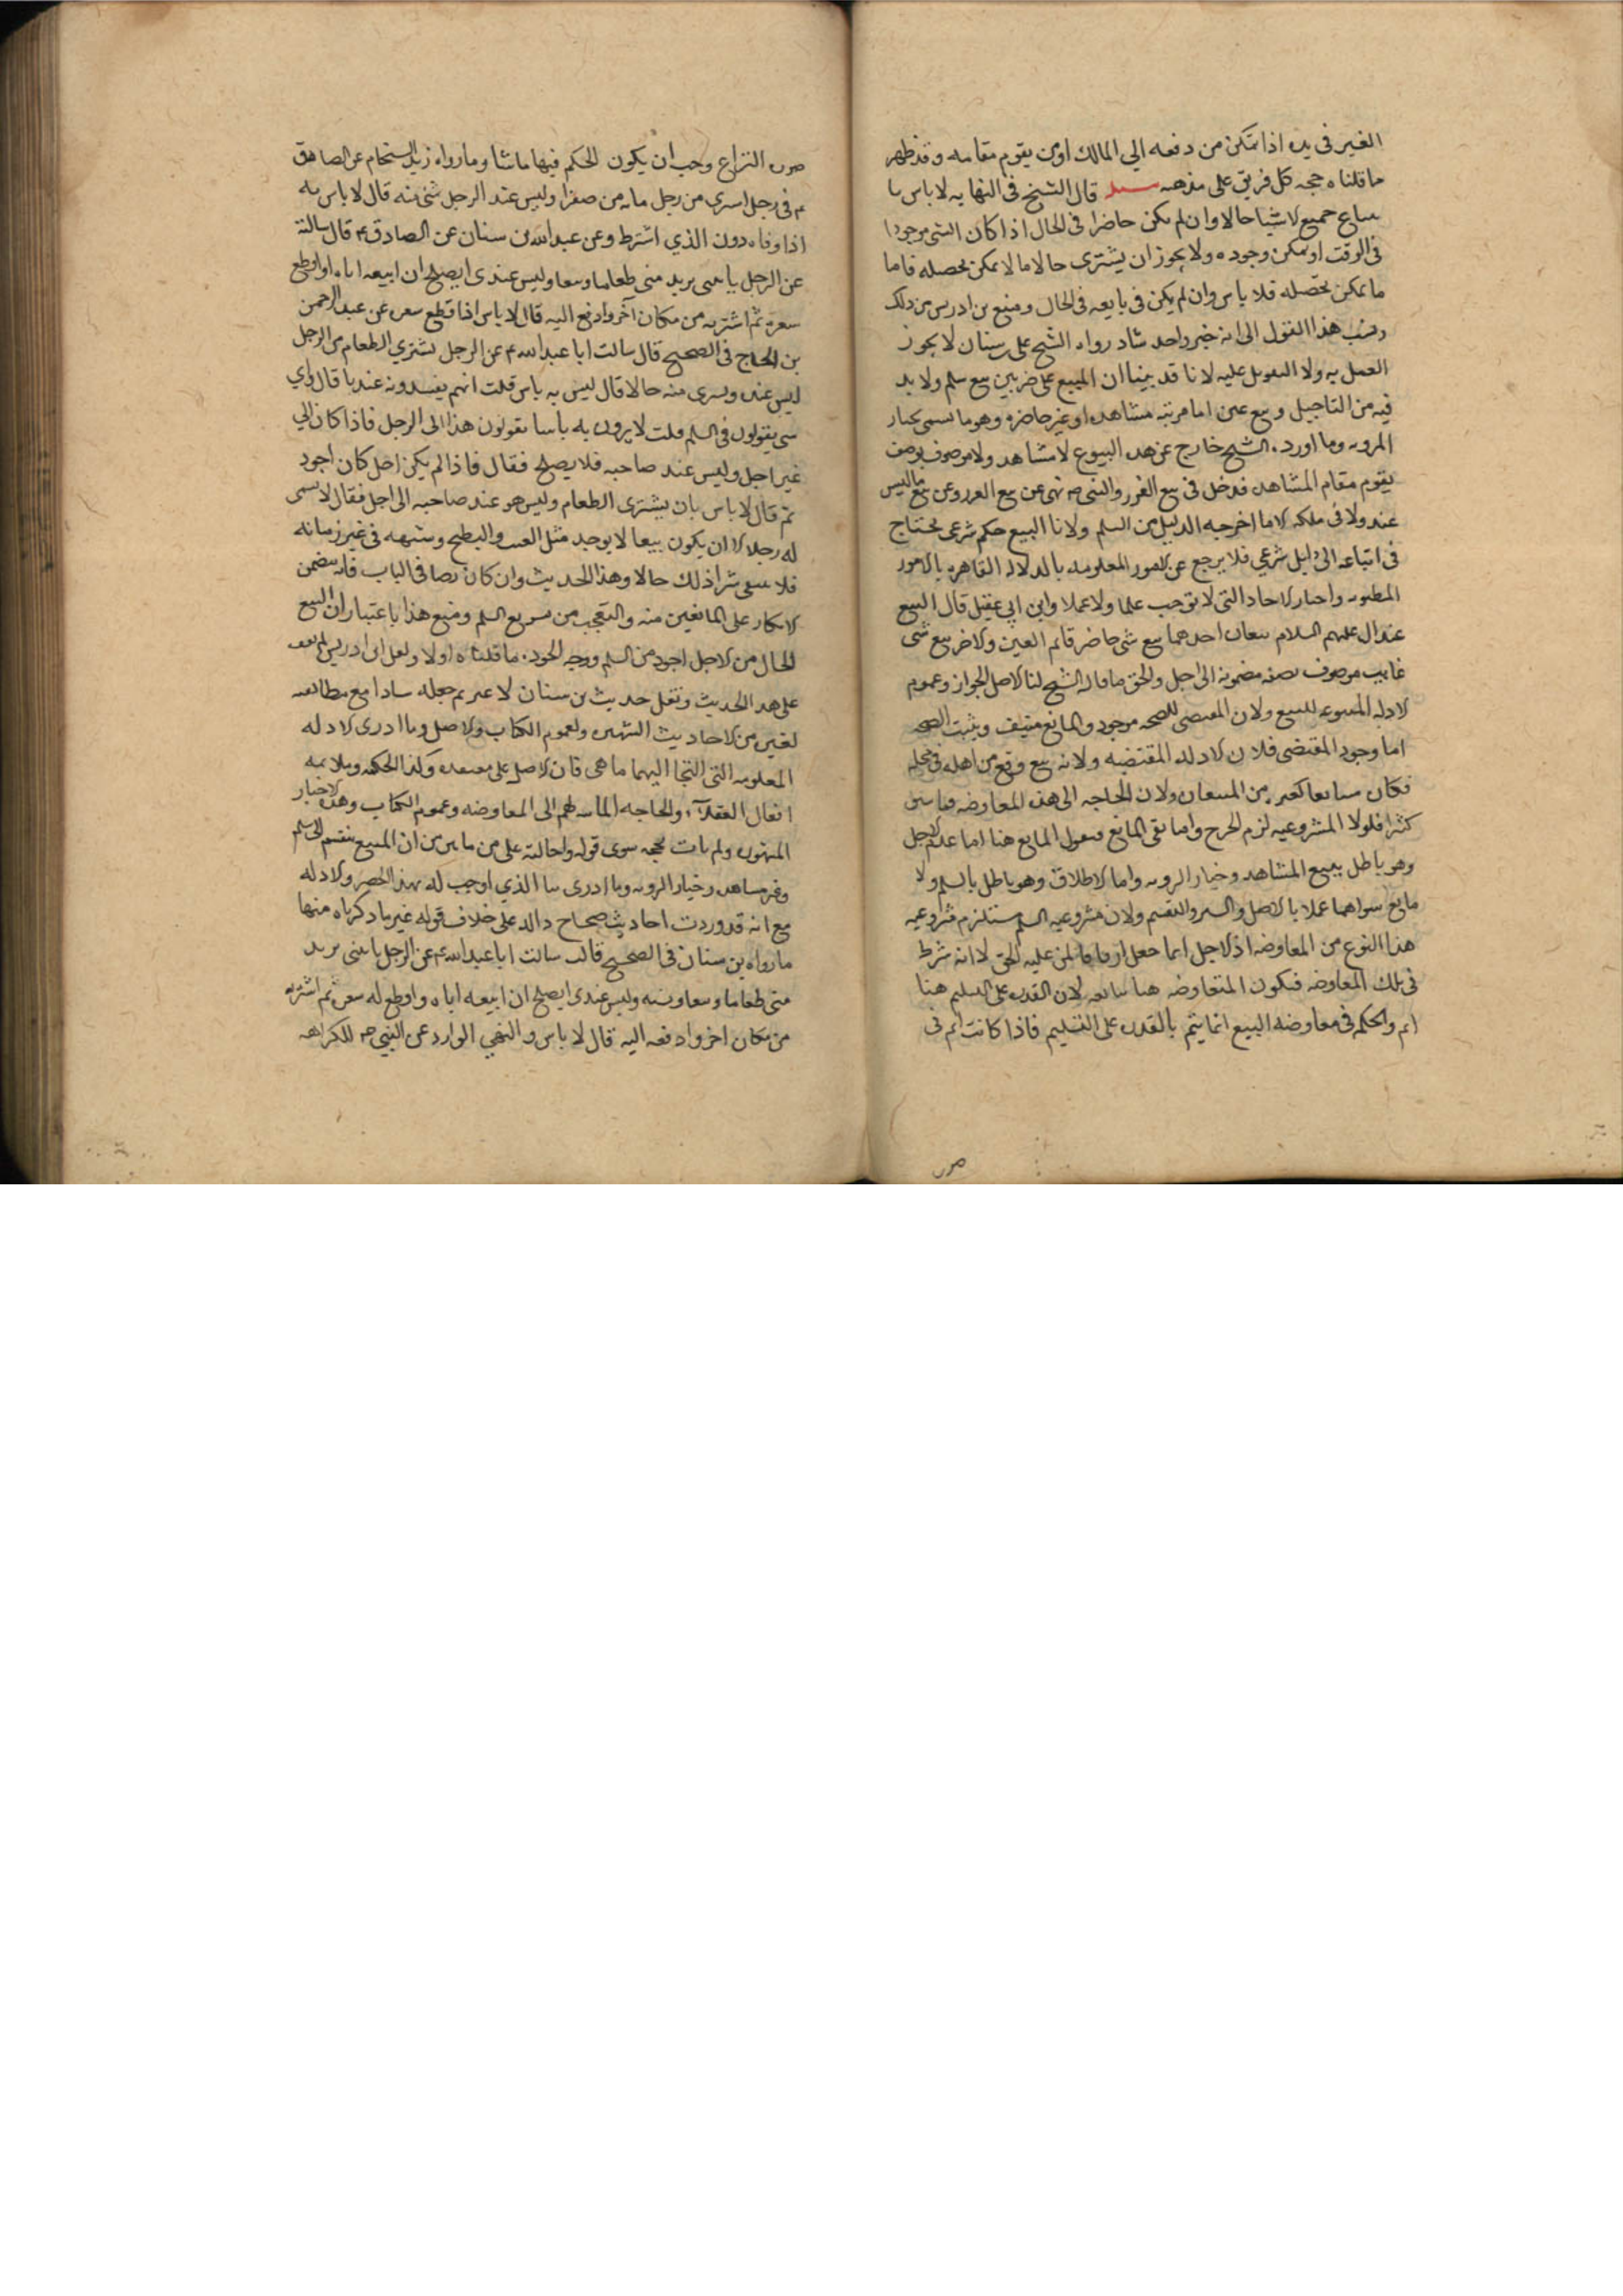 الغير فى يده اذا تمكن من دفعه الي المالك اومن يقوم مقامه وقد ظهر
ما قلناه حجه كل فريق على مذهبه قال الشيخ فى النهايه لا باس با
ساع جميع الاشيا حالا وان لم يكن حاضرا فى الحال اذا كان الشى موجودا
فى الوقت او يمكن وجوده ولا يجوز ان يشترى حالا ما لا يمكن تحصله فاما
ما يمكن تحصله فلا باس وان لم يكن فى بايعه فى الحال ومنع بن ادريس من ذلك
ونسب هذا القول الى انه خبر واحد شاد رواه الشيخ على بن سنان لا يجوز
العمل به ولا التعويل عليه لانا قد بينا ان المبيع على ضربين بيع سلم ولا بد
فيه من التاجيل وبيع عين اما مرئيه مشاهده او غير حاضره وهو ما يسمى بخيار
الرويه وما اورده الشيخ خارج عن هذه البيوع لا مشاهد ولا موصوف بوصف
يقوم مقام المشاهده فدخل فى بيع الغرر والنبى صم نهى عن بيع الغرر وعن بيع ما ليس
عنده ولا فى ملكه الا ما اخرجه الدليل من السلم ولانا البيع حكم شرعى يحتاج
فى اتباعه الى دليل شرعي فلا يرجع عن الامور المعلومه بالدلاله القاهره بالامور
المظنونه واخبار الاحاد التى لا توجب علما ولا عملا وابن ابي عقيل قال البيع
عند ال عليهم السلام بيعان احدهما بيع شى حاضر قايم العين والاخر بيع شى
غايب موصوف بصفه مضمونه الى اجل والحق ما قاله الشيخ لنا الاصل الجواز وعموم
الادله المسوغه للبيع ولان المقتضى للصحه موجود والمانع منتيف ويثبت الصحه
اما وجود المقتضى فلان الادله المقتضيه ولانه بيع وقع من اهله فى محله
فكان سايعا كغيره من المبيعات ولان الحاجه الى هذه المعاوضه
كثيرا فلولا المشروعيه لزم الحرج واما نفى المانع فنقول المانع هنا اما عدم الاجل
وهو باطل ببيع المشاهد وخيار الرويه واما الاطلاق وهو باطل بالسلم ولا
مانع سواهما عملا بالاصل والسبر والتقسيم ولان مشروعيه السلم مستلزم مشروعيه
هذا النوع من المعاوضه اذ الاجل انما جعل ارفاقا لمن عليه الحق لا انه شرط
فى تلك المعاوضه فيكون المتعاوضه هنا سايغه لان القدره على التسليم هنا
اتم والحكم فى معاوضه البيع انما يتم بالقدره على التسليم فاذا كانت اتم فى
صوره
صوره النزاع وجب ان يكون الحكم فيها ماشا وما رواه زيد الشحام عن الصادق
ع فى رجل اسرى من رجل مايه من صفرا وليس عند الرجل شى منه قال لا باس به
اذا وفاه دون الذي اشترط وعن عبد الله بن سنان عن الصادق ع قال سالته
عن الرجل ياتينى يريد منى طعاما وبيعا وليس عندى ايصلح ان ابيعه اياه واقطع
سعره ثم اشتريه من مكان آخر وادفع اليه قال لا باس اذا قطع سعره عن عبد الرحمن
بن الحجاج فى الصحيح قال سالت ابا عبد الله ع عن الرجل يشتري الطعام من الرجل
ليس عنده ويسرى منه حالا قال ليس به باس قلت انهم يفسدونه عندنا قال واي
شى يقولون فى السلم قلت لا يرون به باسا يقولون هذا الى الرجل فاذا كان الي
غير اجل وليس عند صاحبه فلا يصلح فقال فاذا لم يكن اجل كان اجود
ثم قال لا باس بان يشترى الطعام وليس هو عند صاحبه الى اجل فقال لا يسمى
له رجلا الا ان يكون بيعا لا يوجد مثل العنب والبطيح وشبهه فى غير زمانه
فلا ينبغى شرا ذلك حالا وهذا الحديث وان كان نصا فى الباب فانه يتضمن
الانكار على المانعين منه والتعجب من تسويغ السلم ومنع هذا باعتبار ان البيع
الحال من الاجل اجود من السلم ووجه الجوده ما قلناه اولا ولعل ابن ادريس لم يقف
على هذا الحديث ونقل حديث بن سنان لا غير ثم جعله شادا مع مطابقته
لغيره من الاحاديث الشهيره ولعموم الكتاب والاصل وما ادرى الادله
المعلومه التى التجا اليها ما هى فان الاصل على معتقده وكذا الحكمه وملايمه
افعال العقلآء والحاجه الماسه لهم الى المعاوضه وعموم الكتاب وهذه الاخبار
المتهوره ولم يات بحجه سوى قوله واحالته على من ما بين من ان المبيع ينقسم الى سلم
وغير مشاهد وخيار الرويه وما ادرى ما الذي اوجب له بهذا الحصر والادله
مع انه قد وردت احاديث صحاح داله على خلاف قوله غير ما ذكرناه منها
ما رواه بن سنان فى الصحيح قال سالت ابا عبد الله ع عن الرجل ياتينى يريد
منى طعاما وبيعا وليس عندى ايصلح ان ابيعه اياه واقطع له سعره ثم اشتريه
من مكان اخر وادفعه اليه قال لا باس والنهي الوارد عن النبي صم للكراهه